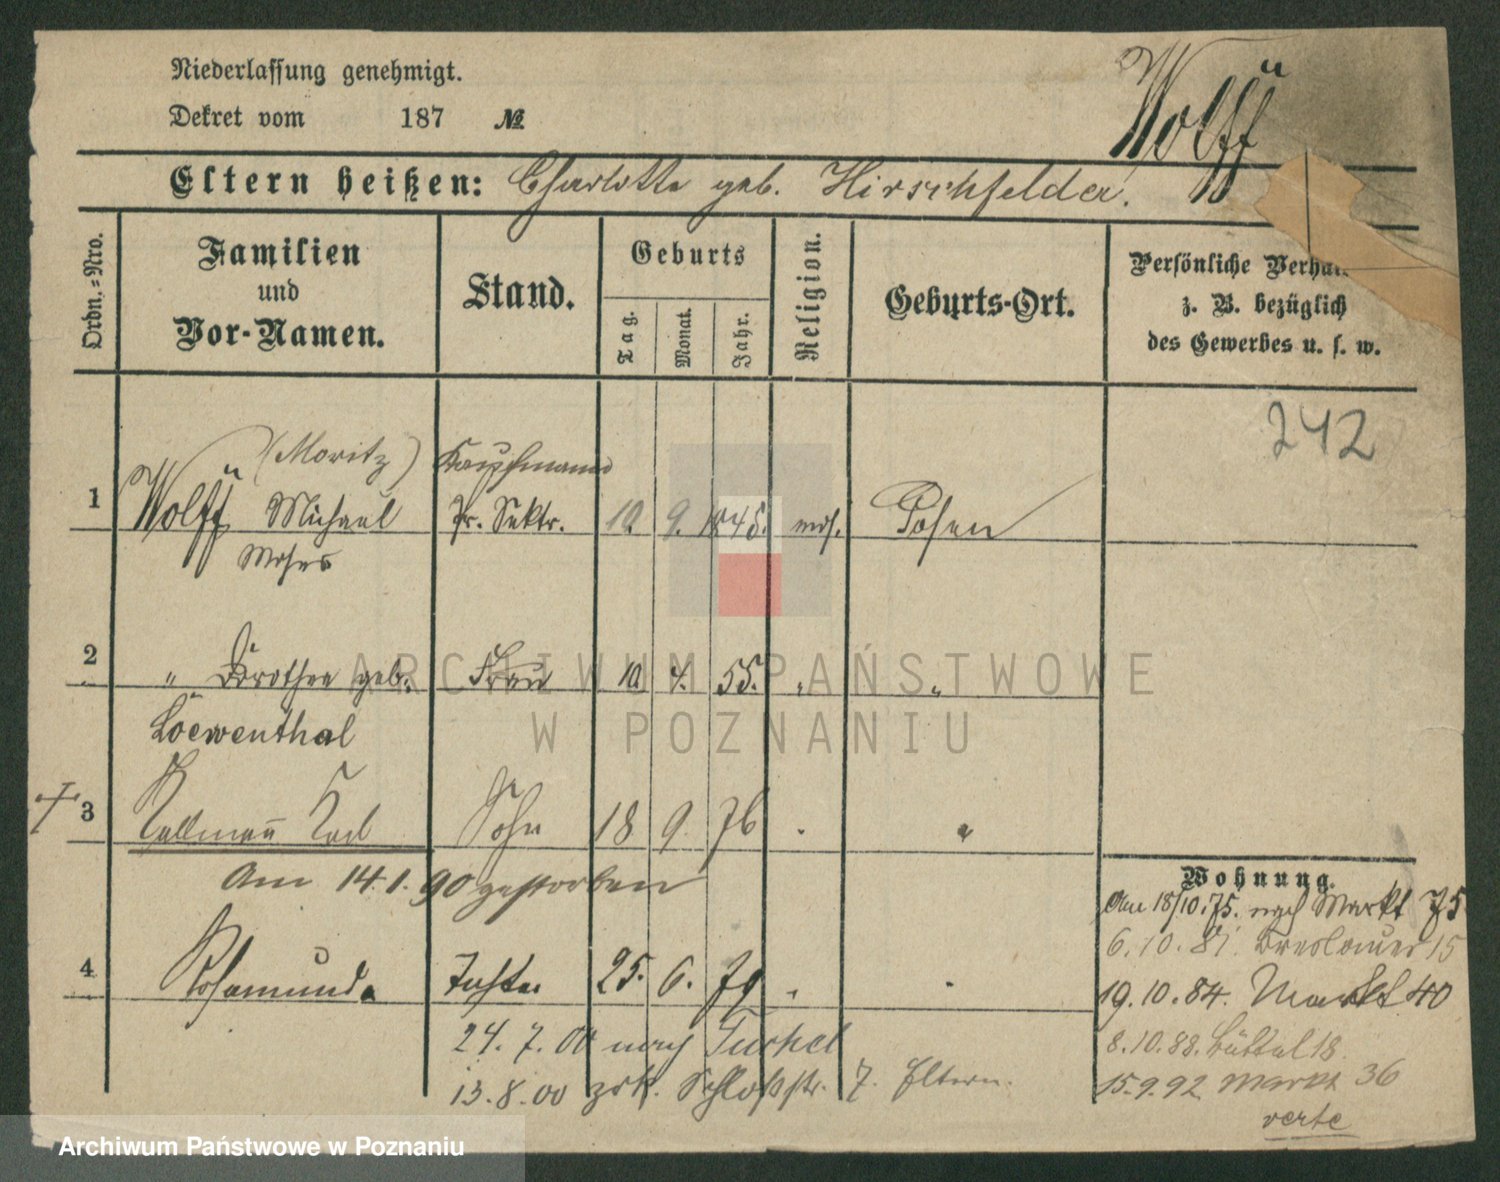 Niederlassung genehmigt.
Dekret vom 187 №
Wolff
Eltern heißen: Charlotte geb. Hirschfelder.
Ordn.-Nro.
Familien
und
Vor-Namen.
Stand.
Geburts
Tag.
Monat.
Jahr.
Religion.
Geburts-Ort.
Persönliche
z. B. bezüglich
des Gewerbes u. s. w.
242
(Moritz) Kaufmann
1 Wolff Michael 10. 9. 1845. mos. Posen
Moses
2 " Dorothea geb. Frau 10 4. 55. " "
Loewenthal
3 Kallmann Karl Sohn 18 9. 76 " "
Am 14.1.90 gestorben
4 Rosamunde Tochter 25. 6. 79 " "
24. 7. 00 nach
13. 8. 00 zrk. Schloßstr. 7. Eltern.
Wohnung.
Am 18/10.75. nach Markt 75
6. 10. 81. Breslauer 15
19. 10. 84. Markt 40
8. 10. 88. Büttel 18.
15. 9. 92 Markt 36
verte
ARCHIWUM PAŃSTWOWE
W POZNANIU
Archiwum Państwowe w Poznaniu